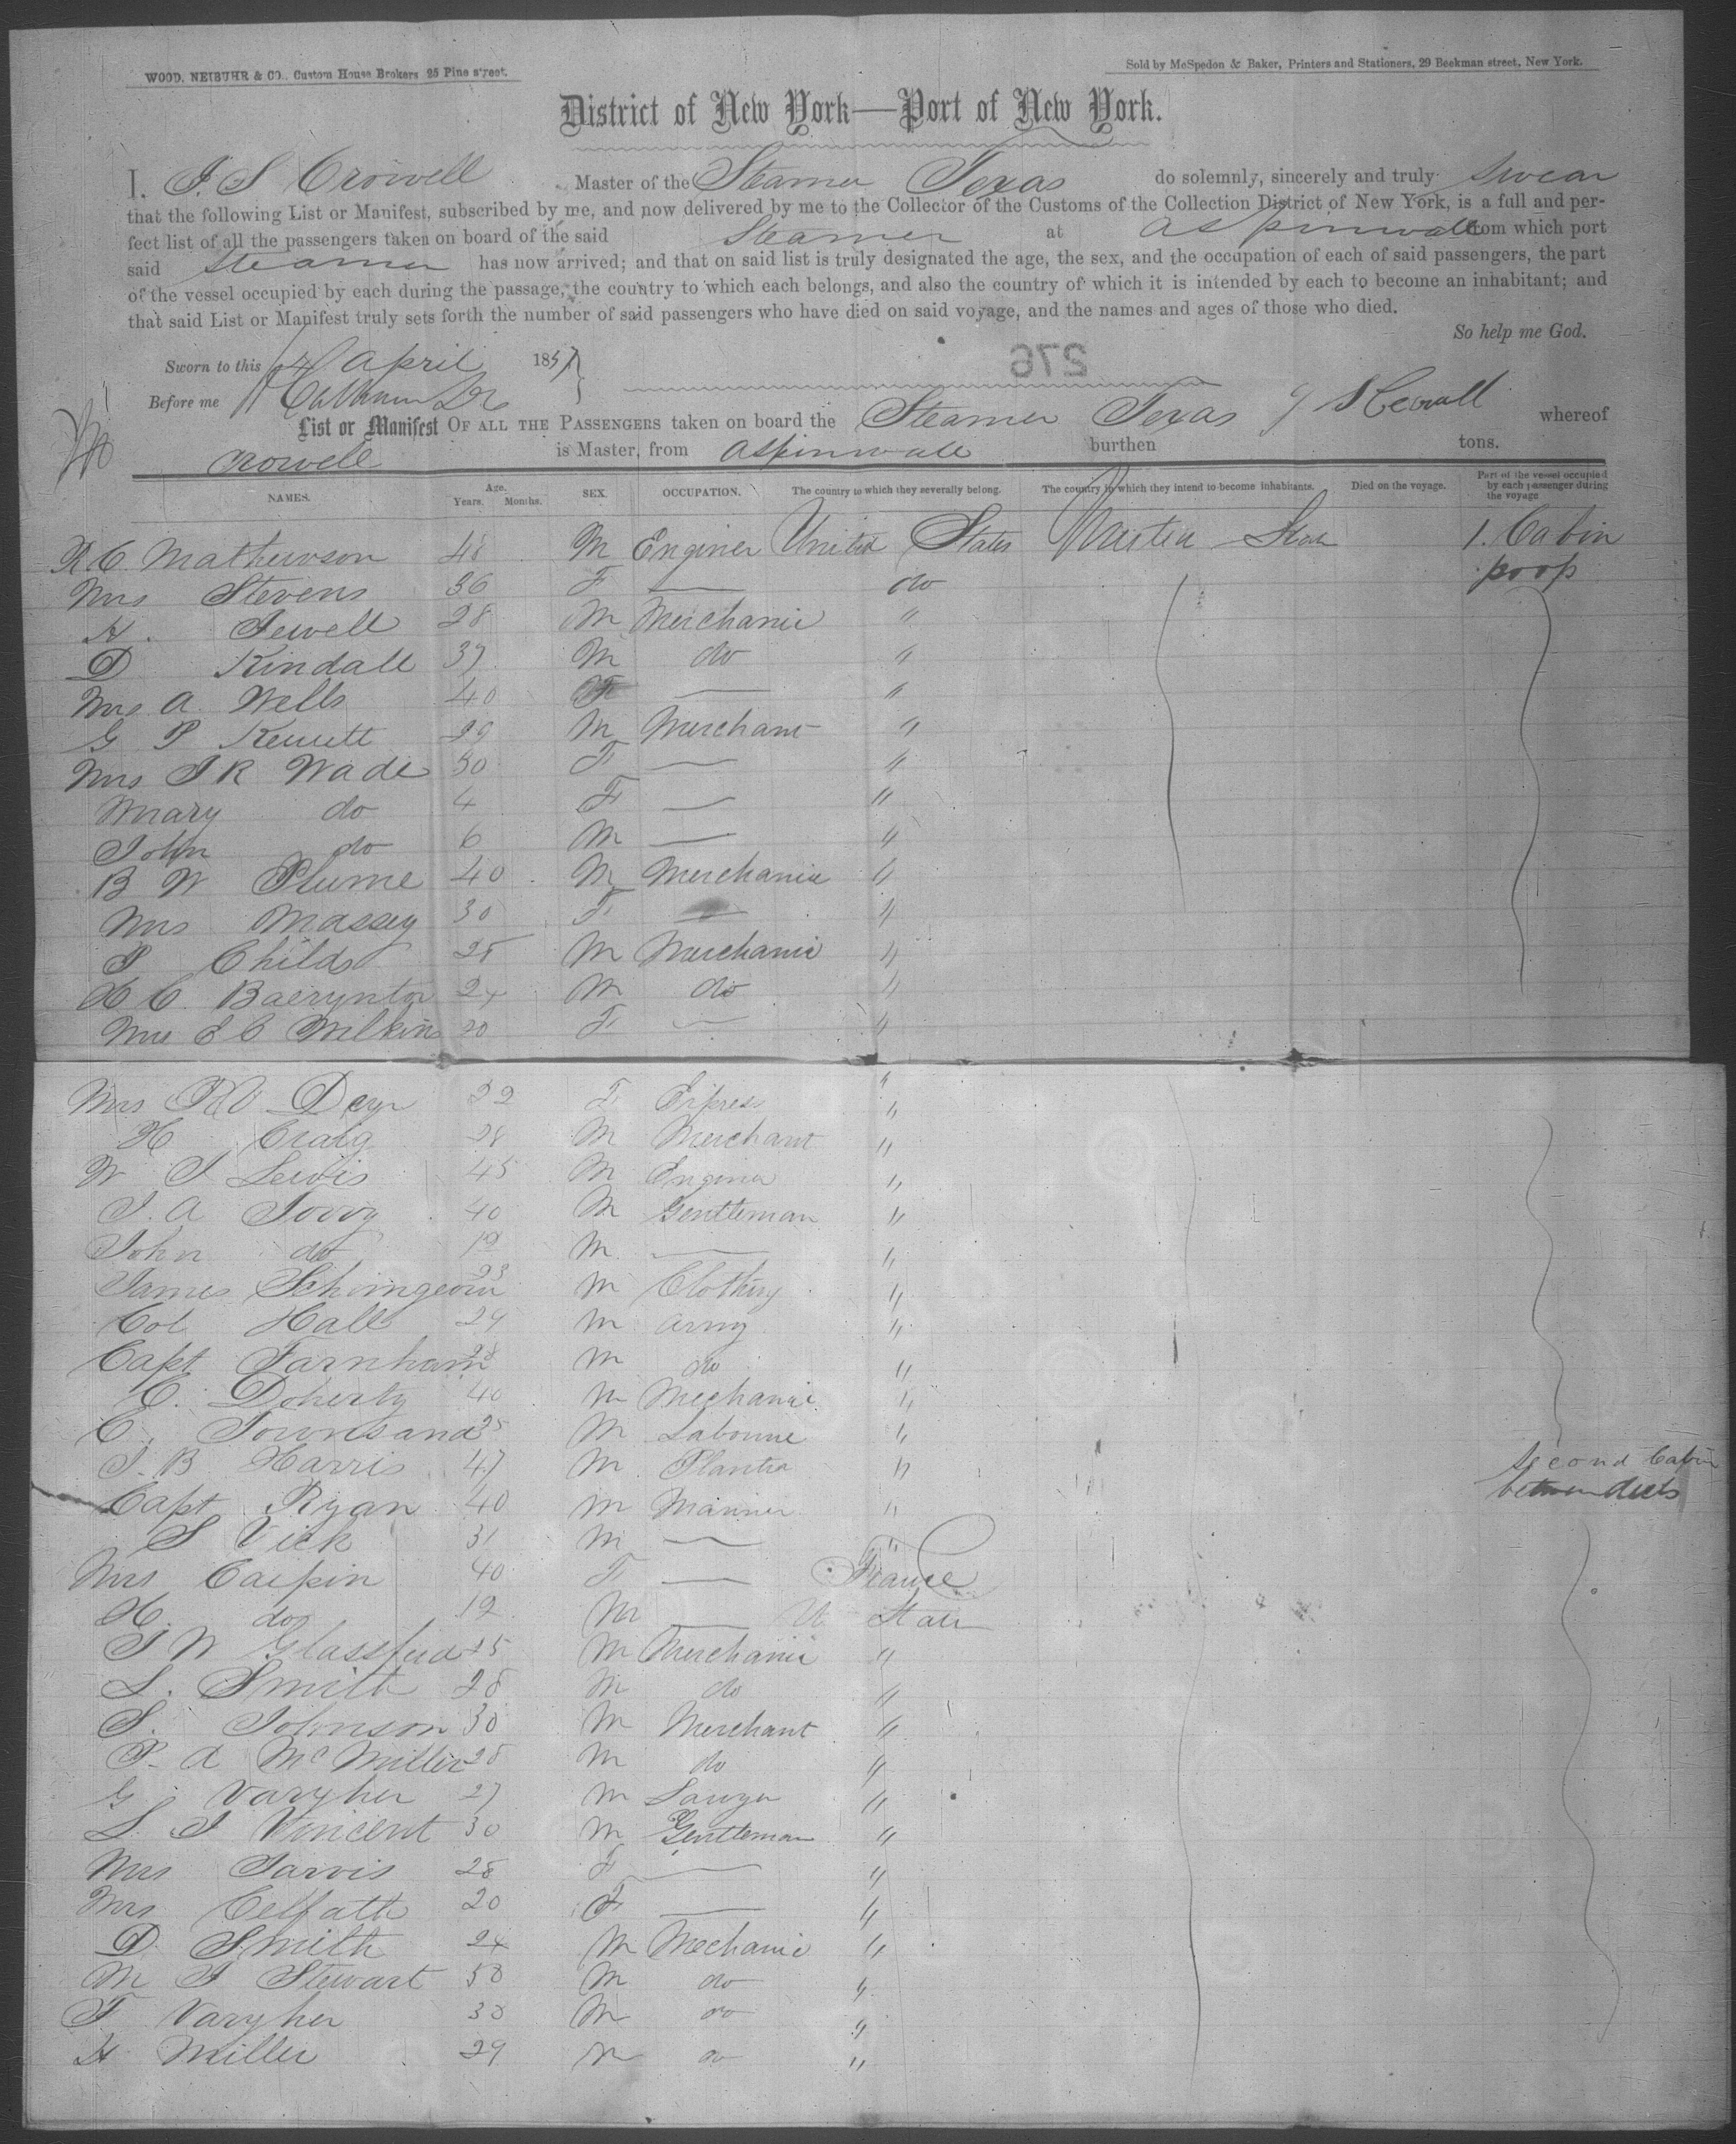 WOOD, NEIBUHR & CO., Custom House Brokers 25 Pine street.
Sold by McSpedon & Baker, Printers and Stationers, 29 Beekman street, New York.
District of New York—Port of New York.
I. J. S Crowell Master of the Steamer Texas do solemnly, sincerely and truly swear
that the following List or Manifest, subscribed by me, and now delivered by me to the Collector of the Customs of the Collection District of New York, is a full and per-
fect list of all the passengers taken on board of the said Steamer at Aspinwall from which port
said Steamer has now arrived; and that on said list is truly designated the age, the sex, and the occupation of each of said passengers, the part
of the vessel occupied by each during the passage, the country to which each belongs, and also the country of which it is intended by each to become an inhabitant; and
that said List or Manifest truly sets forth the number of said passengers who have died on said voyage, and the names and ages of those who died.
So help me God.
Sworn to this April 1857
276
Before me
List or Manifest OF ALL THE PASSENGERS taken on board the Steamer Texas whereof
Crowell is Master, from Aspinwall burthen tons.
NAMES. Age. Years. Months. SEX. OCCUPATION. The country to which they severally belong. The country in which they intend to become inhabitants. Died on the voyage. Part of the vessel occupied by each passenger during the voyage
R C Mathewson 48 M Enginer United States 1. Cabin
Mrs Stevens 36 F — do poop
H. Jewell 28 M Merchanic "
D Kindall 37 M do "
Mrs A. Wells 40 F — "
G P 29 M Merchant "
Mrs J R Wade 30 F — "
Mary do 4 F — "
John do 6 M — "
B W Plume 40 M Merchanic "
Mrs Massey 30 F — "
P Childs 25 M Merchanic "
H C. 24 M do "
E C Wilkins 20 F — "
"
Mrs 22 F Express "
H Craig 28 M Merchant "
W J Lewis 45 M Engineer "
J. A 40 M Gentleman "
John do 19 M — "
James 23 M Clothing "
Col Hall 29 M Army "
Capt Farnham 28 M do "
C. Doherty 40 M Mechanic "
C. Townsand 35 M "
J. B Harris 47 M Planter " Second Cabin
Capt Ryan 40 M Mariner " between decks
S Vick 31 M — "
Mrs 40 F — France
H. do 12 M — U States
J W 25 M Merchanic "
L. Smith 28 M do "
S. Johnson 30 M Merchant "
P. A McMiller 28 M do "
G. Varyher 27 M Lawyer "
L. J Vincent 30 M Gentleman "
Mrs Jarvis 28 F — "
Mrs 20 F — "
D. Smith 24 M Mechanic "
M J Stewart 50 M do "
F Varyher 30 M do "
H Miller 29 M do "